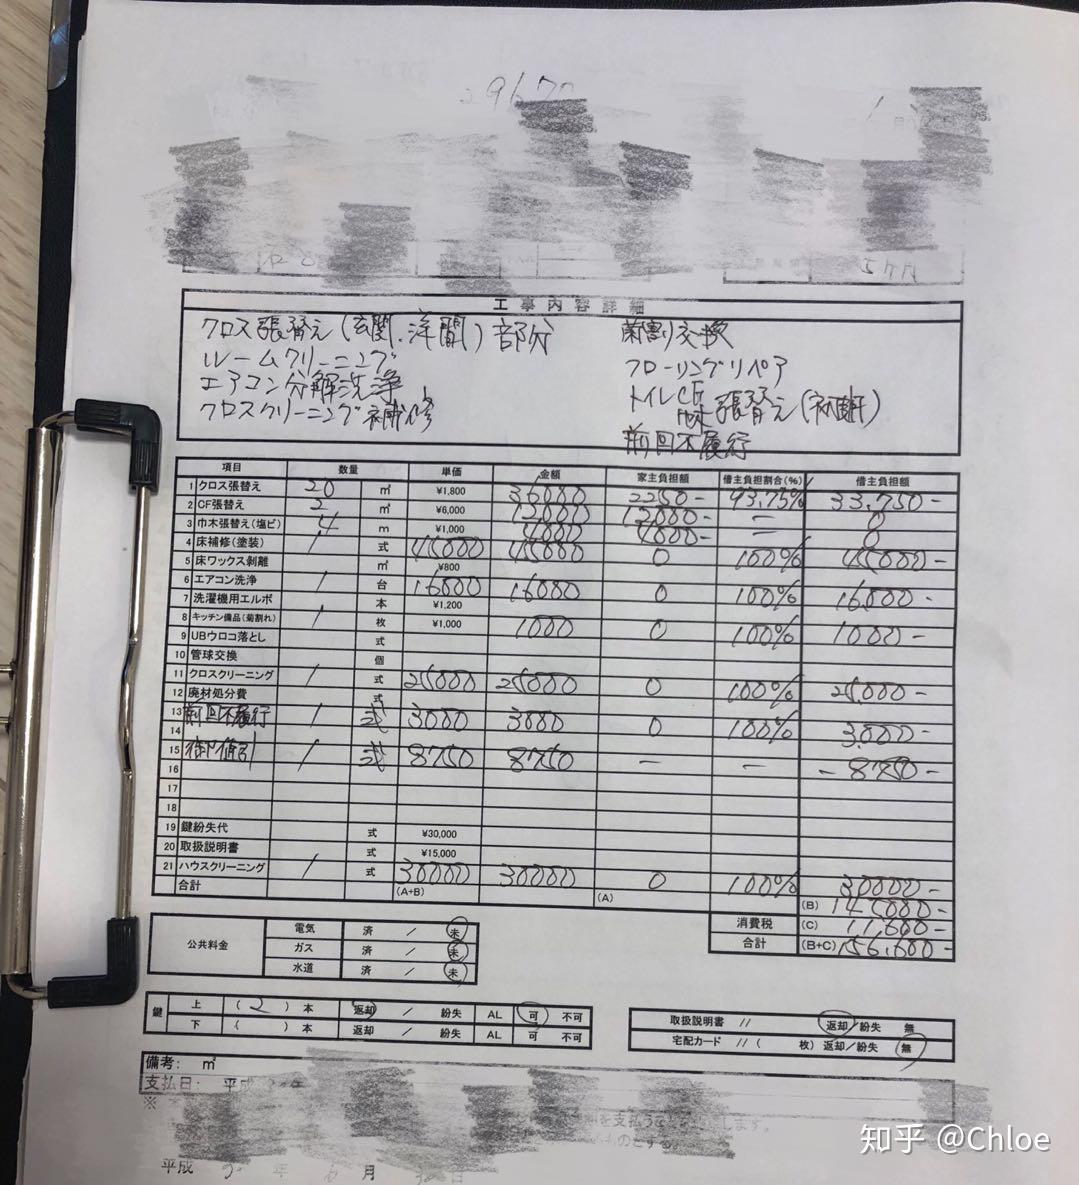 2967
5ヶ月
工事内容詳細
クロス張替え(玄関、洋間)部分
ルームクリーニング
エアコン分解洗浄
クロスクリーニング補修
菊割り交換
フローリングリペア
トイレCF 張替え(初断)
前回不履行
項目 数量 単価 金額 家主負担額 借主負担割合(%) 借主負担額
1 クロス張替え 20 ㎡ ¥1,800 36000 2250- 93.75% 33.750-
2 CF張替え 2 ㎡ ¥6,000 12,000 12,000- — 0
3 巾木張替え(塩ビ) 4 m ¥1,000 4000 4000- — 0
4 床補修(塗装) 1 式 45000 45000 0 100% 45000-
5 床ワックス剥離 ㎡ ¥800
6 エアコン洗浄 1 台 16000 16000 0 100% 16.000-
7 洗濯機用エルボ 本 ¥1,200
8 キッチン備品(菊割れ) 1 枚 ¥1,000 1000 0 100% 1000-
9 UBウロコ落とし 式
10 管球交換 個
11 クロスクリーニング 1 式 25000 25000 0 100% 25,000-
12 廃材処分費 式
13 前回不履行 1 式 3000 3000 0 100% 3.000-
14
15 御値引 1 式 8750 8750 — — -8750-
16
17
18
19 鍵紛失代 式 ¥30,000
20 取扱説明書 式 ¥15,000
21 ハウスクリーニング 1 式 30000 30000 0 100% 30000-
合計 (A+B) (A) (B) 145,000-
消費税 (C) 11,600-
合計 (B+C) 156,600-
公共料金
電気 済 / 未
ガス 済 / 未
水道 済 / 未
鍵
上 ( 2 ) 本 返却 / 紛失 AL 可 不可
下 ( ) 本 返却 / 紛失 AL 可 不可
取扱説明書 // 返却/紛失 無
宅配カード // ( 枚) 返却/紛失 無
備考: ㎡
支払日: 平成 年
※
を支払う
ものとする。
平成 年 月 日
知乎 @Chloe